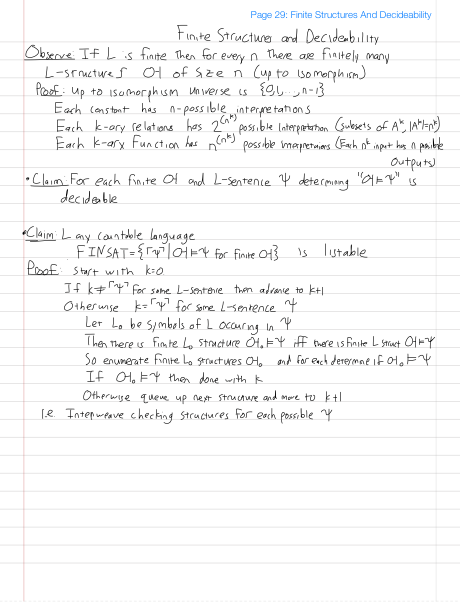 Page 29: Finite Structures And Decideability
Finite Structures and Decideability
Observe: If L is finite then for every n there are finitely many
L-structures 𝔄 of size n (up to isomorphism)
Proof: Up to isomorphism universe is {0,1,...,n-1}
Each constant has n-possible interpretations
Each k-ary relations has 2^(n^k) possible interpretation (subsets of A^k, |A^k|=n^k)
Each k-ary Function has n^(n^k) possible interpretations (Each n^k input has n possible
outputs)
• Claim: For each finite 𝔄 and L-sentence Ψ determining "𝔄⊨Ψ" is
decideable
• Claim: L any countable language
FINSAT={⌜Ψ⌝|𝔄⊨Ψ for finite 𝔄} is listable
Proof: Start with k=0
If k≠⌜Ψ⌝ for some L-sentence then advance to k+1
Otherwise k=⌜Ψ⌝ for some L-sentence Ψ
Let L₀ be symbols of L occuring in Ψ
Then there is finite L₀ structure 𝔄₀⊨Ψ iff there is finite L struct 𝔄⊨Ψ
So enumerate finite L₀ structures 𝔄₀ and for each determine if 𝔄₀⊨Ψ
If 𝔄₀⊨Ψ then done with k
Otherwise queue up next structure and move to k+1
I.e. Interweave checking structures for each possible Ψ